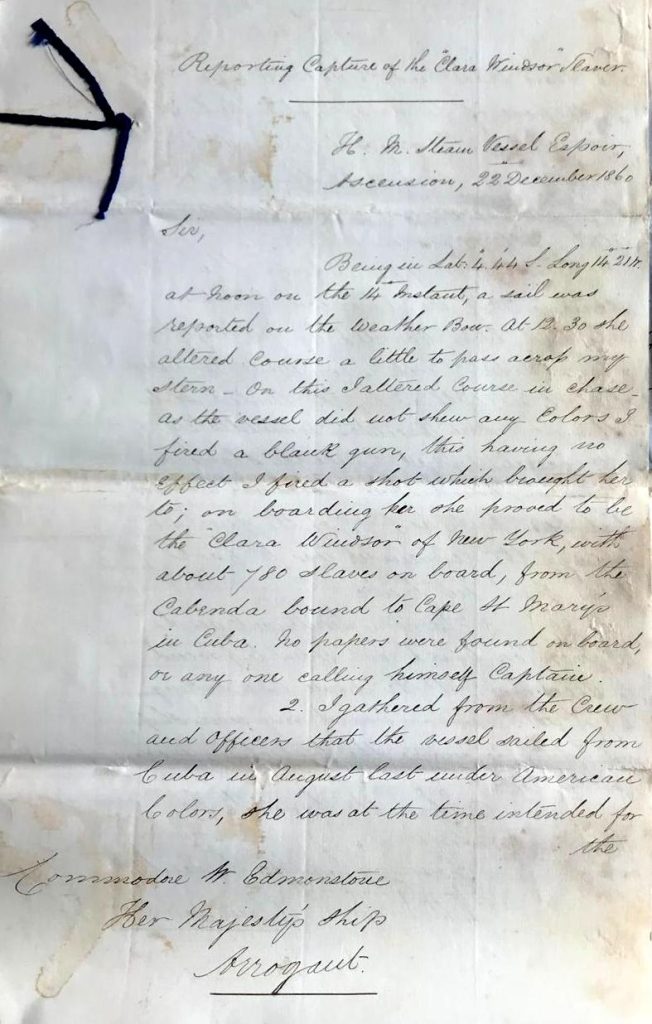 Reporting Capture of the "Clara Windsor" Slaver.
H. M. Steam Vessel Espoir,
Ascension, 22 December 1860
Sir,
Being in Lat. 4° 44' S. Long 14° 21 W.
at Noon on the 14th Instant, a sail was
reported on the Weather Bow. At 12.30 she
altered Course a little to pass across my
stern – On this I altered Course in chase –
as the vessel did not shew any Colors I
fired a blank gun, this having no
Effect I fired a shot which brought her
to; on boarding her she proved to be
the "Clara Windsor" of New York, with
about 780 Slaves on board, from the
Cabenda bound to Cape St Mary's
in Cuba. No papers were found on board,
or any one calling himself Captain.
2. I gathered from the Crew
and Officers that the vessel sailed from
Cuba in August last under American
Colors, she was at the time intended for
the
Commodore W. Edmonstone
Her Majesty's Ship
Arrogant.